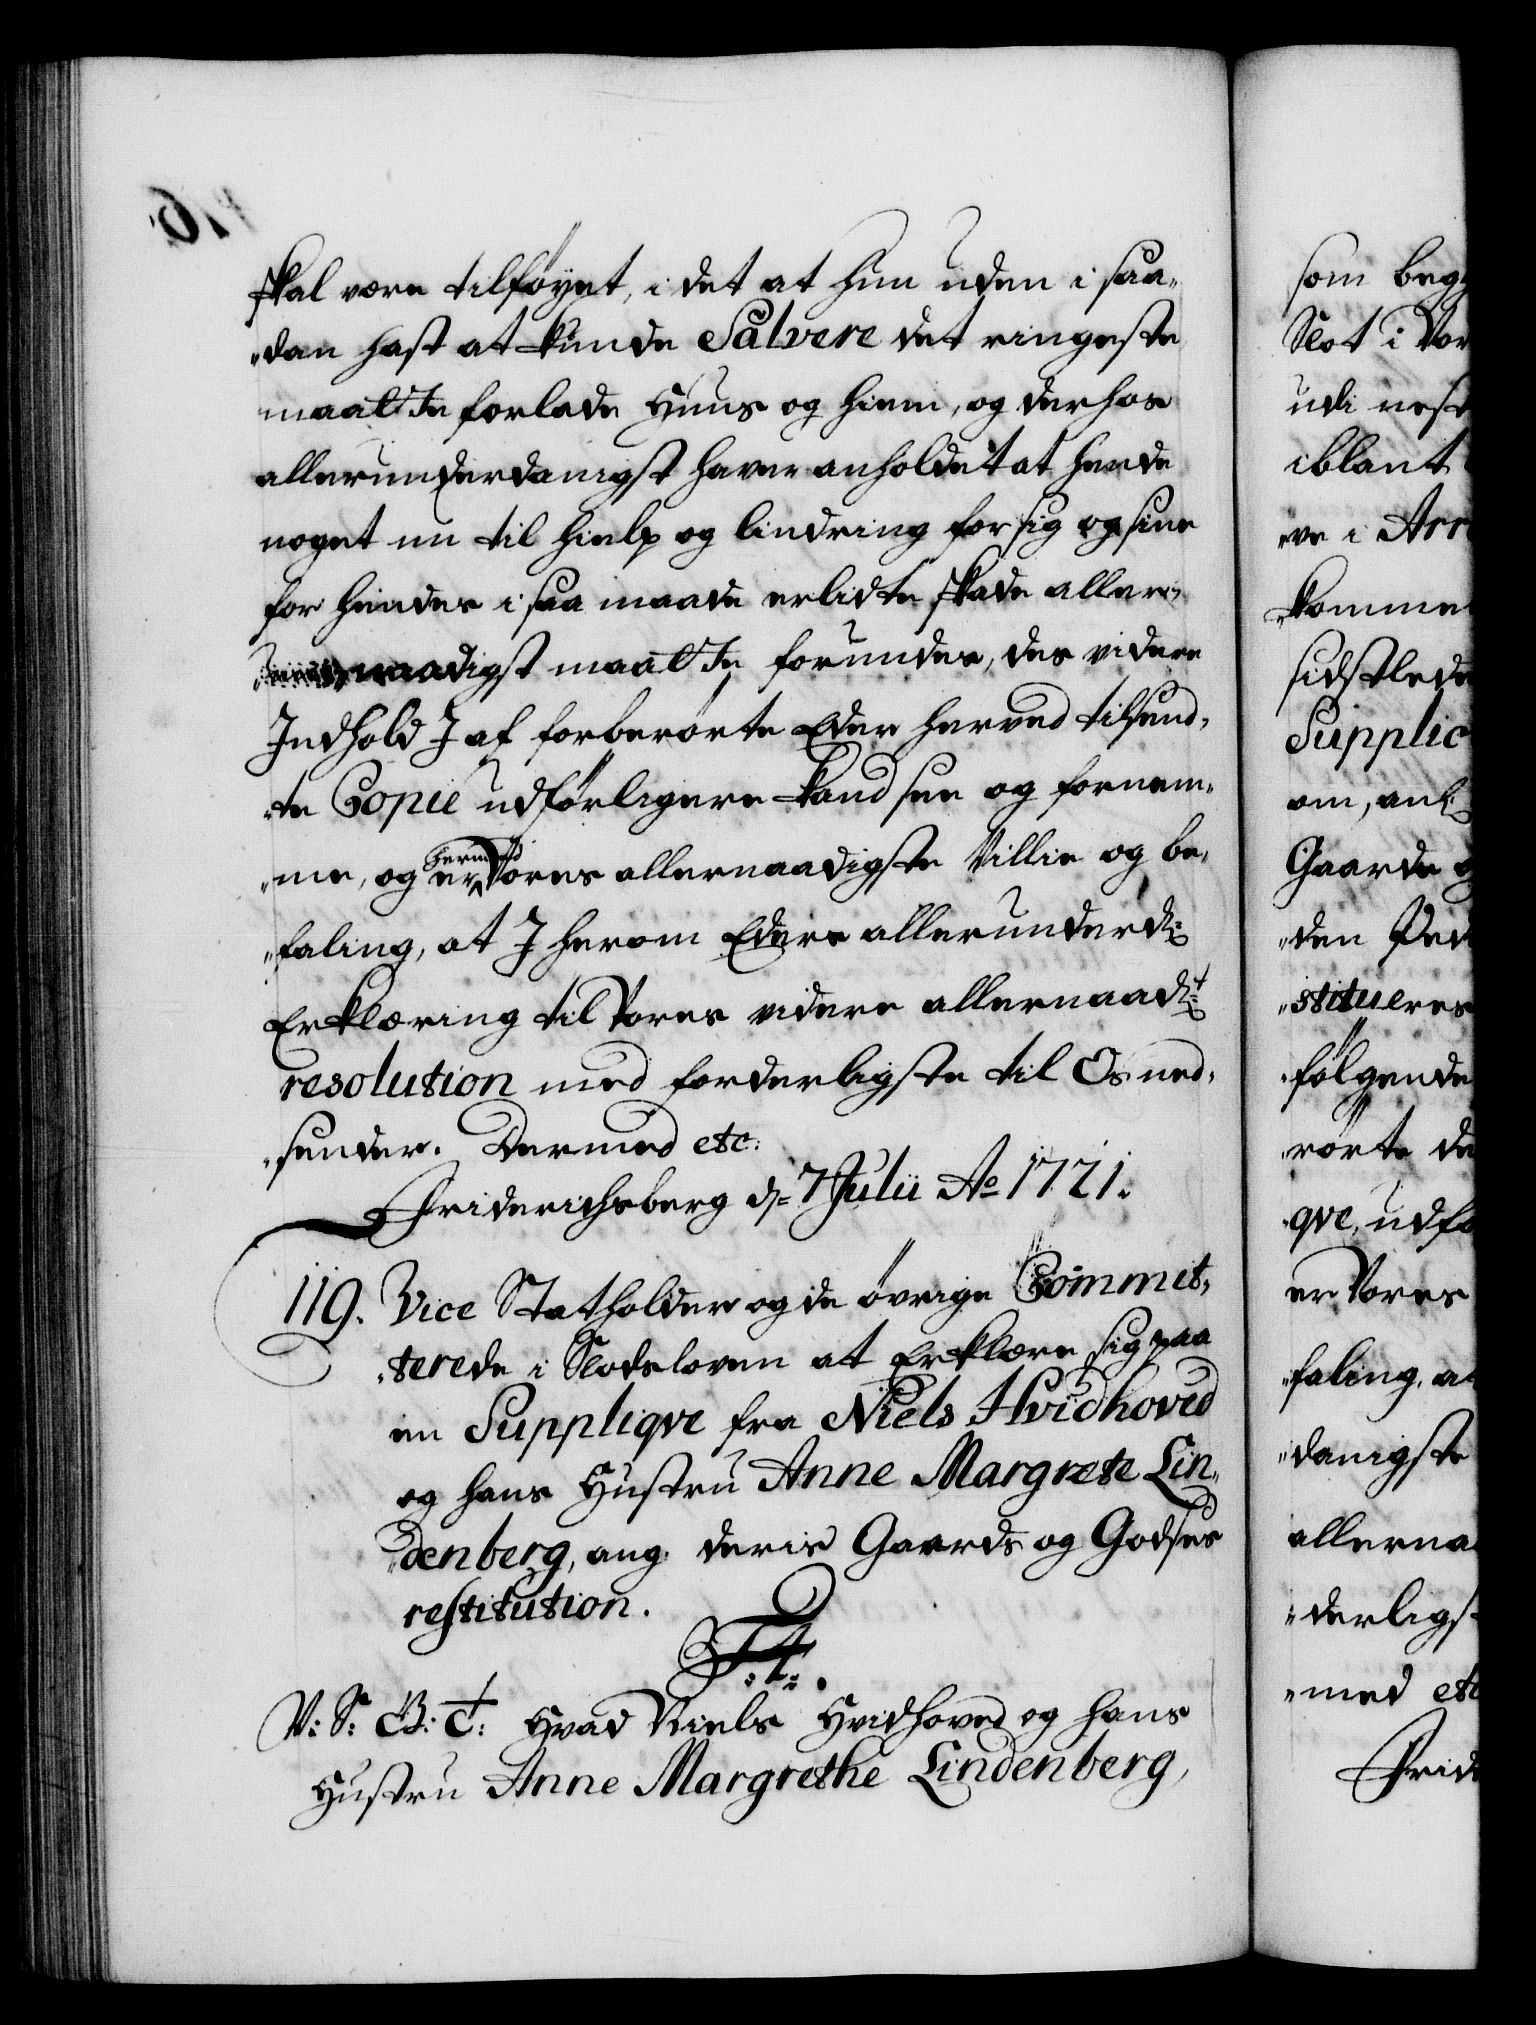 skal være tilføyet, i det at hun uden i saa„
„dan hast at kunde Salvere det ringeste
maatte forlade Huus og hiem, og derhos
allerunderdanigst haver anholdet at hende
noget nu til hielp og lindring for sig og sine
for hendes i saa maade erlidte skade aller„
naadigst maatte forundes, des videre
Indhold I af forberørte Eder herved tilsend„
„te Copie udførligere kand see og fornem„
„me, og er hermed Vores allernaadigste Villie og be„
„faling, at I herom Eders allerunderd:
Erklæring til Vores videre allernaad:t
resolution med forderligste til Os ned„
„sender. Dermed etc:
Friderichsberg d= 7 Julii Ao 1721.
119. Vice Statholder og de øvrige Commit„
„terede i Slodsloven at Erklære sig paa
en Suppliqve fra Niels Hvidhoved
og hans Hustru Anne Margrete Lin„
„denberg, ang: deris Gaards og Godses
restitution.
F: 4:.
V: S: G: T: Hvad Niels Hvidhoved og hans
Hustru Anne Margrethe Lindenberg,
som beg
Slot i Vor
udi nest
iblant
„ve i Arr
„komme
sidstlede
Supplic
om, anl:
Gaarde
„den Ved
„stitueres
„følgende
„rørte de
„qve, udfø
er Vores
„faling, at
„danigste
allerna
„derligst
„med etc
Frid